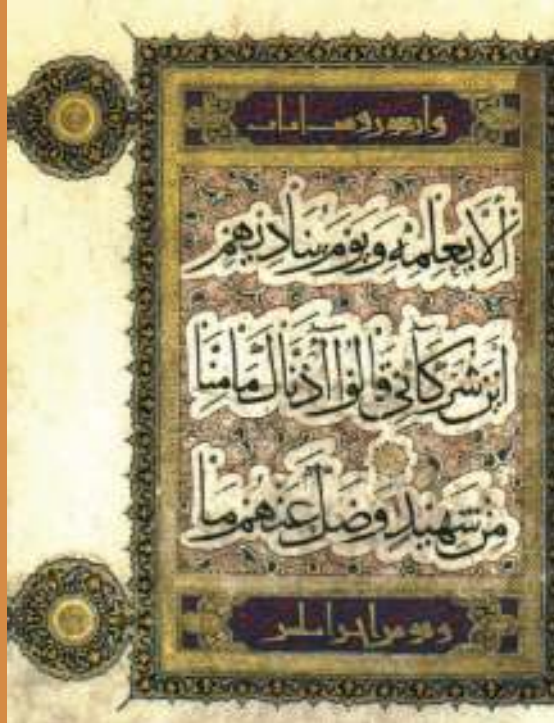 إلا بعلمه ويوم يناديهم
أين شركائي قالوا آذناك ما منا
من شهيد وضل عنهم ما